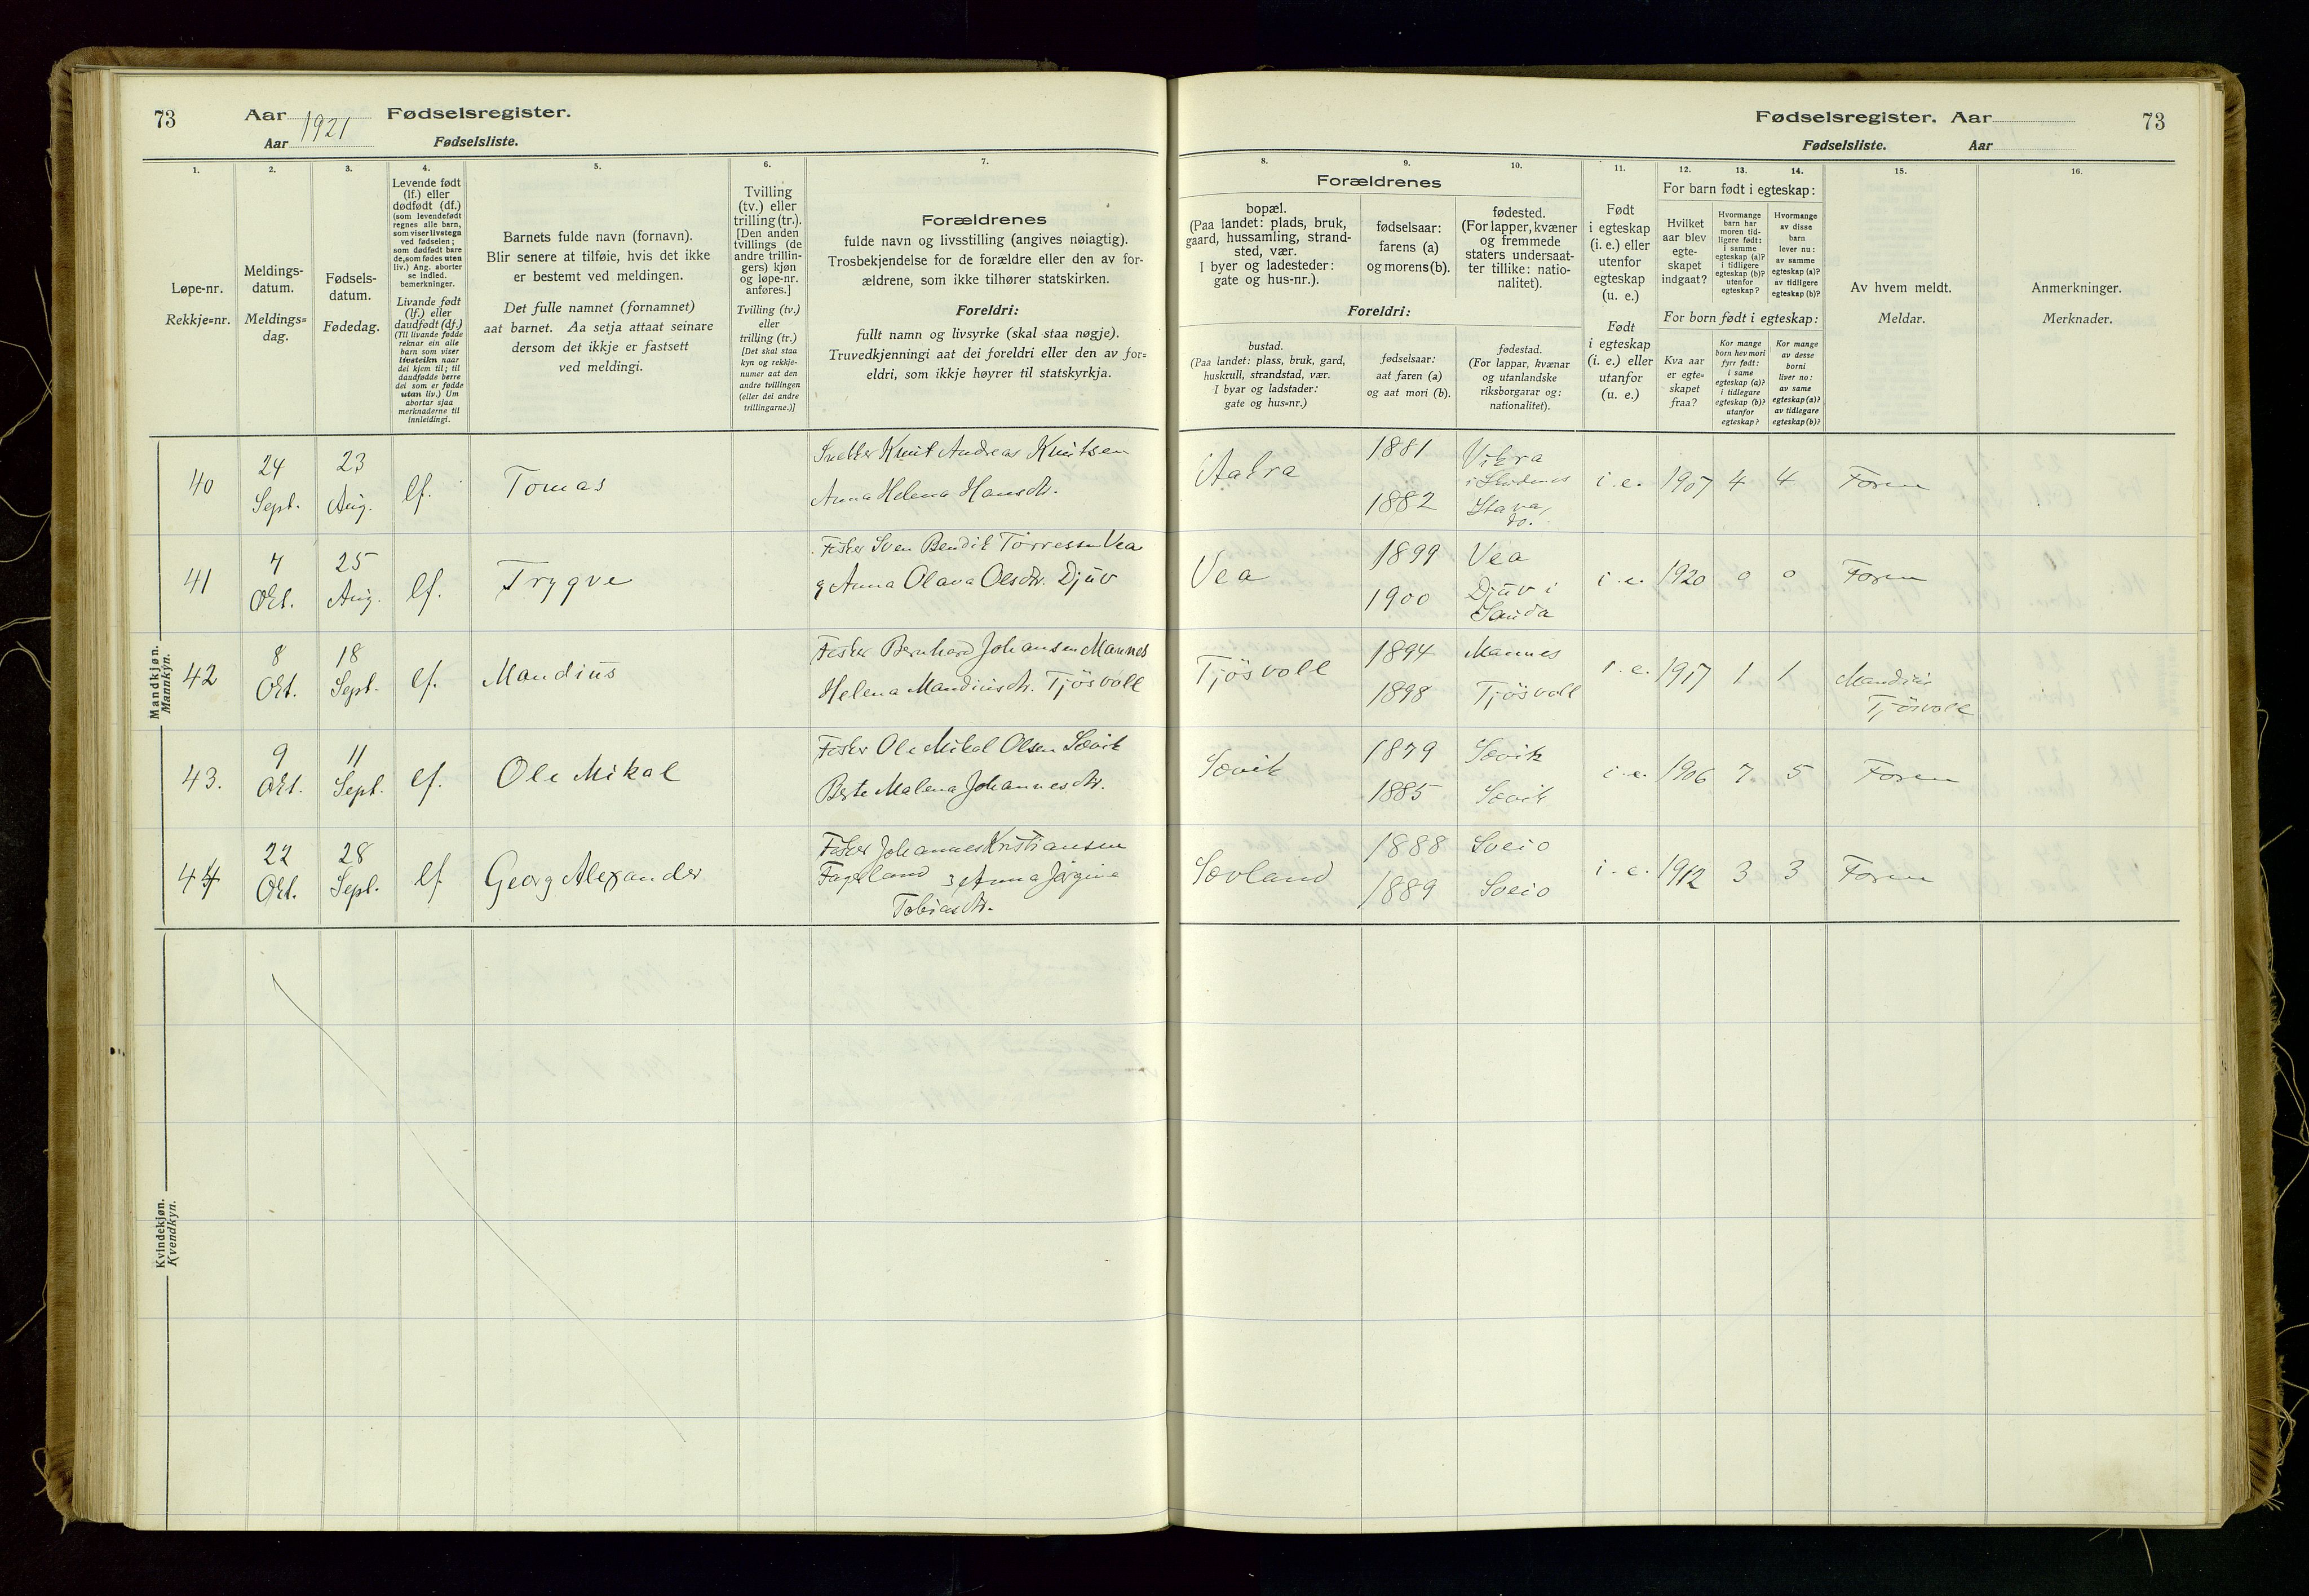 73
Aar 1921 Fødselsregister.
Aar Fødselsliste.
1. 2. 3. 4. 5. 6. 7.
Løpe-nr.
Rekkje=nr.
Meldings-
datum.
Meldings=
dag.
Fødsels-
datum.
Fødedag.
Levende født
(lf.) eller
dødfødt (df.)
(som levendefødt
regnes alle barn,
som viser livstegn
ved fødselen;
som dødfødt bare
de, som fødes uten
liv.) Ang. aborter
se indled.
bemerkninger.
Livande født
(lf.) eller
daudfødt (df.)
(Til livande fødde
reknar ein alle
barn som viser
livsteikn naar
dei kjem til; til
daudfødde berre
dei som er fødde
utan liv.) Um
abortar sjaa
merknaderne til
innleidingi.
Barnets fulde navn (fornavn).
Blir senere at tilføie, hvis det ikke
er bestemt ved meldingen.
Det fulle namnet (fornamnet)
aat barnet. Aa setja attaat seinare
dersom det ikkje er fastsett
ved meldingi.
Tvilling
(tv.) eller
trilling (tr.).
[Den anden
tvillings (de
andre trillin-
gers) kjøn
og løpe-nr.
anføres.]
Tvilling (tv.)
eller
trilling (tr.)
[Det skal staa
kyn og rekkje-
numer aat den
andre tvillingen
(eller dei andre
trillingarne.)]
Forældrenes
fulde navn og livsstilling (angives nøiagtig).
Trosbekjendelse for de forældre eller den av for-
ældrene, som ikke tilhører statskirken.
Foreldri:
fullt namn og livsyrke (skal staa nøgje).
Truvedkjenningi aat dei foreldri eller den av for=
eldri, som ikkje høyrer til statskyrkja.
Mandkjøn.
Mannkyn.
40 24 Sept. 23 Aug. lf. Tomas Knut Andreas Knutsen
Anna Helena Hansdtr.
41 7 Okt. 25 Aug. lf. Trygve Fisker Sven Bendik Torressen Vea
& Anna Olava Olsdtr. Djuv
42 8 Okt. 18 Sept. lf. Mandius Fisker Bernhard Johansen Mannes
Helena Mandiusdtr. Tjösvoll
43. 9 Okt. 11 Sept. lf. Ole Mikal Fisker Ole Mikal Olsen Sævik
Berte Malena Johannesdtr.
44 22 Okt. 28 Sept. lf Georg Alexander Fisker Johannes Kristiansen
Fagerland & Anna Jørgine
Tobiasdtr.
Kvindekjøn.
Kvendkyn.
Fødselsregister. Aar 73
Fødselsliste. Aar
8. 9. 10. 11. 12. 13. 14. 15. 16.
Forældrenes
bopæl.
(Paa landet: plads, bruk,
gaard, hussamling, strand-
sted, vær.
I byer og ladesteder:
gate og hus-nr.).
fødselsaar:
farens (a)
og morens (b).
fødested.
(For lapper, kvæner
og fremmede
staters undersaat-
ter tillike: natio-
nalitet).
Foreldri:
bustad.
(Paa landet: plass, bruk, gard,
huskrull, strandstad, vær.
I byar og ladstader:
gate og hus=nr.)
fødselsaar:
aat faren (a)
og aat mori (b).
fødestad.
(For lappar, kvænar
og utanlandske
riksborgarar og:
nationalitet).
Født
i egteskap
(i. e.) eller
utenfor
egteskap
(u. e.)
Født
i egteskap
(i. e.) eller
utanfor
(u. e.)
For barn født i egteskap:
Hvilket
aar blev
egte-
skapet
indgaat?
Hvormange
barn har
moren tid-
ligere født:
i samme
egteskap (a)?
i tidligere
egteskap (b)?
utenfor
egteskap?
Hvormange
av disse
barn
lever nu:
av samme
egteskap (a)?
av tidligere
egteskap (b)?
For born født i egteskap:
Kva aar
er egte=
skapet
fraa?
Kor mange
born hev mori
fyrr født:
i same
egteskap (a)?
i tidlegare
egteskap (b)?
utanfor
egteskap?
Kor mange
av desse
borni
liver no:
av same
egteskap (a)?
av tidlegare
egteskap (b)?
Av hvem meldt.
Meldar.
Anmerkninger.
Merknader.
Aakra 1881 Vikra
i Skudenes
1882 Stava,
do.
i. e. 1907 4 4 Faren
Vea 1899 Vea
1900 Djuv i
Sauda
i. e. 1920 0 0 Faren
Tjösvoll 1894 Mannes
1898 Tjösvoll
i. e. 1917 1 1 Mandius
Tjösvoll
Sævik 1879 Sævik
1885 Sævik
i. e. 1906 7 5 Faren
Sævland 1888 Sveio
1889 Sveio
i. e. 1912 3 3 Faren